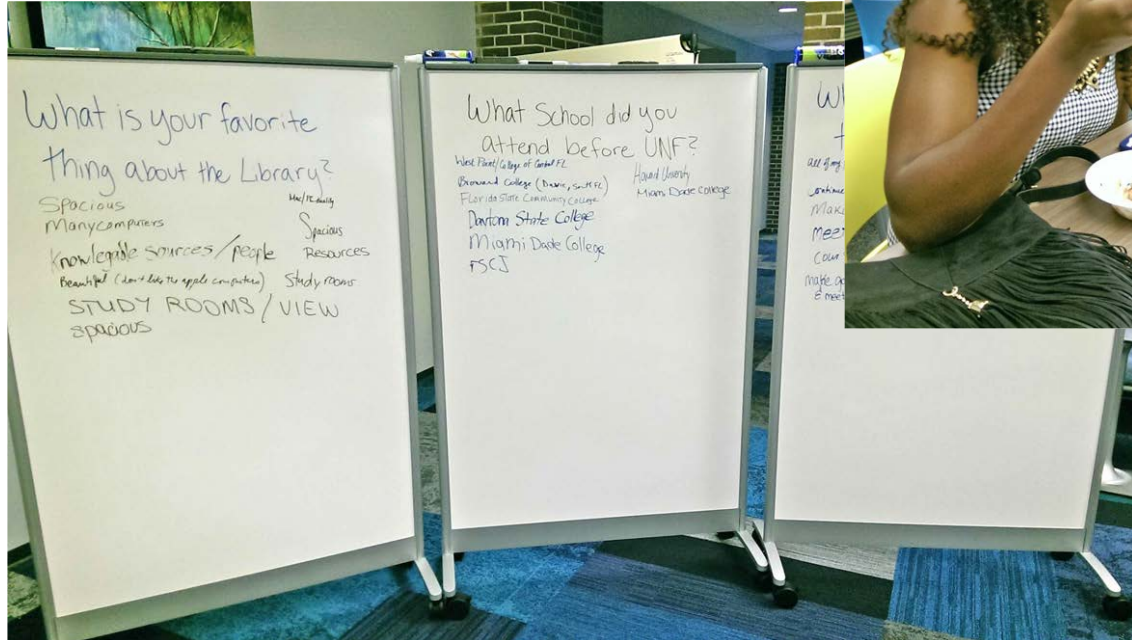 What is your favorite
thing about the Library?
Spacious
Many computers
Mac/PC duality
Spacious
Knowlegable sources/people
Resources
Beautiful (don't like the apple computers)
Study rooms
STUDY ROOMS/VIEW
spacious
What School did you
attend before UNF?
West Point/College of Central FL
Broward College (Davie, South FL)
Florida State Community College
Daytona State College
Miami Dade College
FSCJ
Howard University
Miami Dade College
all of my
continue
Make
MEET
make go
& meet